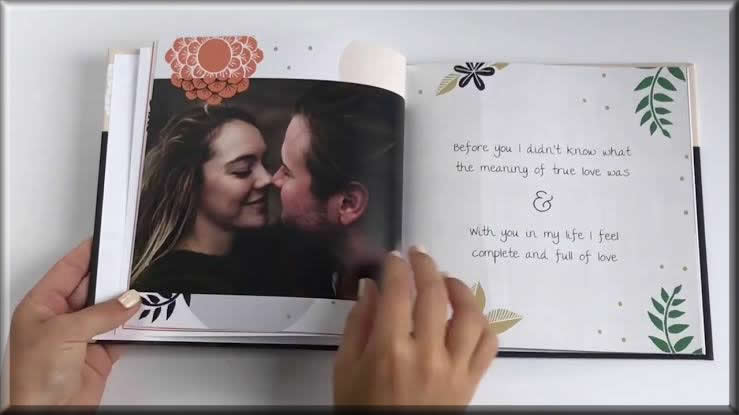 Before you I didn't know what
the meaning of true love was
&
With you in my life I feel
complete and full of love